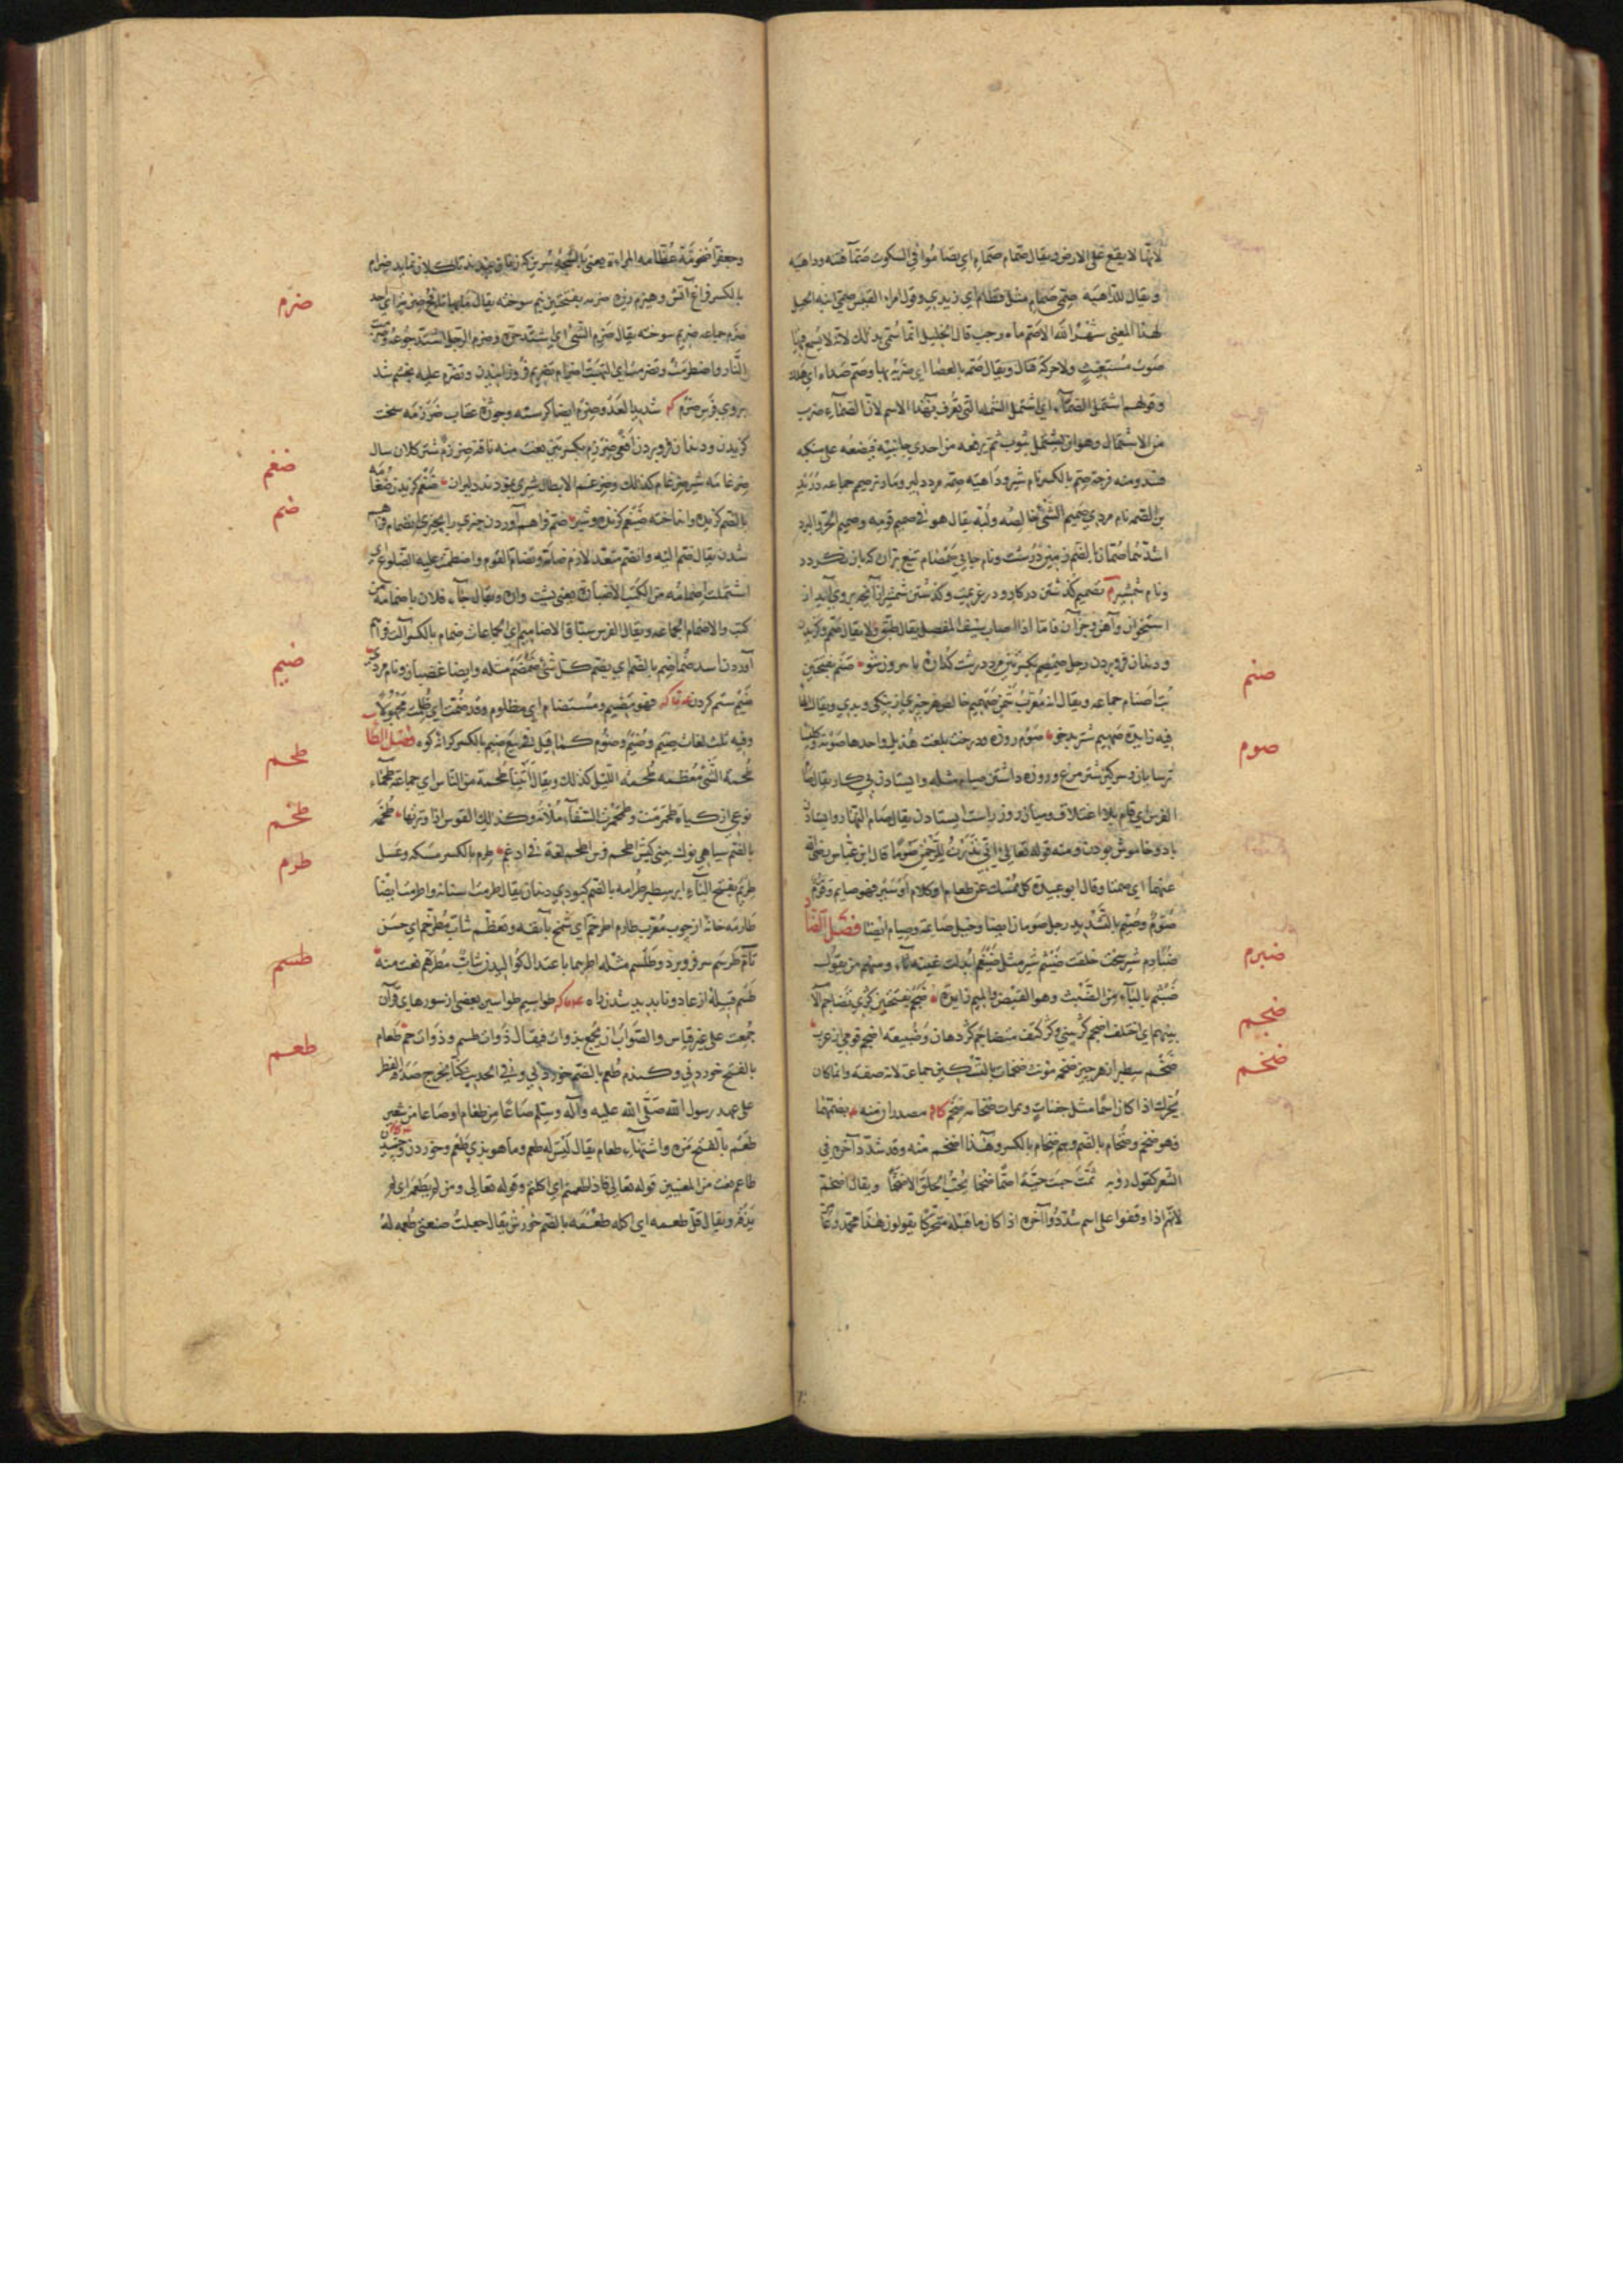 لانها لا يقع على الارض ويقال صمام صمام اي تصاموا في السكوت صماء فتنه وداهيه
ويقال للداهيه صمي صمام مثل قطام اي زيدي وقول امراء القيس صمي ابنه الجبل
لهذا المعنى شهر الله الاصم ماه رجب قال الخليل انما سمي بذلك لانه لا يسمع فيها
صوت مستغيث ولا حركة قتال ويقال صمه بالعصا اي ضربه بها وصم صداه اي هلك
وقولهم اشتمل الصماء اي اشتمل الشملة التي تعرف بهذا الاسم لان الصماء ضرب
من الاشتمال وهو ان يشتمل بثوب ثم يرفعه من احدى جانبيه فيضعه على منكبه
صمه بالكسر نام شير وداهيه صمه مرد دلير ومار نر صمم جماعه دريد
بن الصمه نام مردي صميم الشئ خالصه ولبه يقال هو في صميم قومه وصميم الحر والبرد
اشدهما صمان بالفتح زمين درشت ونام جايي صمصام تيغ بران كه باز نكردد
ونام شمشير تصميم كذشتن در كار ودر عزيمت وكذشتن شمشير از آنچه بروي آيد از
استخوان وآهن وجز آن فاما اذا اصاب المفصل يقال طبق ولا يقال صمم وكزيدن
ودندان فرو بردن رجل صمصم بكسرتين مرد درشت صنم بفتحتين
صنم
بت اصنام جماعه ويقال انه معرب شمن صهميم خالص هر چيزي از نيكي وبدي ويقال
فيه زائدة صهميم شتر بدخو صوم روزه ودرخت بلغت هذيل واحدها صومة
صوم
ترسايان وسركين شتر مرغ وروزه داشتن صيام مثله وايستادن بي كار يقال صام
الفرس اي قام بلا اعتلاف وميان روز راست ايستادن يقال صام النهار وايستادن
باد وخاموش بودن ومنه قوله تعالى اني نذرت للرحمن صوما قال ابن عباس رضي الله
عنهما اي صمتا وقال ابو عبيدة كل ممسك عن طعام او كلام او سير فهو صايم وقوم
صوم وصيم بالتشديد رجل صومان ايضا وخيل صايمه وصيام ايضا فصل الضاد
ضبارم شير سخت خلقت ضيثم شير مثل ضيغم ابدلت غينه ثاء ومنهم من يقول
ضبرم
ضبثم بالباء من الضبث وهو القبض والميم زايدة ضجم بفتحتين كژي تضاجم الامر
بينهم اي اختلف اضجم كژ بيني وكژ كتف متضاجم كژ دهان وضبيعه اضجم قومي از عرب
ضجم
ضخم سطبر از هر چيز ضخمه مونث ضخمات بالتسكين جماعة لانه صفة وانما كان
ضخم
يحرك اذا كان اسما مثل جفنات وتمرات ضخامه ضخم كالم مصدران منه بفتحهما
فهو ضخم وضخام بالضم وهم ضخام بالكسر وهذا اضخم منه وقد شدد آخره في
الشعر كقول رؤبه ثمت جئت حية اصما ضخما يحب الخلق الاضخما ويقال اضخمة
لانهم اذا وقفوا على اسم شددوا آخره اذا كان ما قبله متحركا يقولون هذا محمد وعامر
وجعفر اضخومة عظامه المراة يعني بالشجه
بالكسر فروغ آتش وهيزم ريزه ضرمه بفتحتين نيم سوخته يقال ما بها نافخ ضرمة اي احد
ضرم
ضرم جماعه ضريم سوخته يقال ضرم الشئ اي اشتد حره وضرم الرجل اشتد جوعه وضرمت
النار واضطرمت وتضرمت اي التهبت اضرام تضريم فروزانيدن وتضرم عليه بخشم شد
بروي فرس ضرم شديد العدو وضرم ايضا كرسنه وجوژه عقاب ضرزمه سخت
كزيدن ودندان فرو بردن افعى ضرزم بكسرتين نعت منه ناقة ضرزم شتر كلان سال
ضرغامه شير ضرغام كذلك وضرغم الابطال شيري نمودند دليران ضغم كزيدن ضغامه
ضغم
بالضم كزيده وانداخته ضيغم كزنده وشير ضم فراهم آوردن چيزي را بچيزي انضمام فراهم
ضم
شدن يقال ضم اليه وانضم متعد لازم ضامه وتضام القوم واضطمت عليه الضلوع اي
اشتملت اضمامه من الكتب الاضبارة يعني پشت واره ويقال جاء فلان باضمامة من
كتب والاضمام الجماعه ويقال الفرس سباق الاضاميم اي الجماعات ضمام بالكسر آلت فراهم
آوردن اسد ضماضم بالضم اي يضم كل شئ ضمضم مثله وايضا غضبان ونام مردي
ضيم ستم كردن فهو مضيم ومستضام اي مظلوم وقد ضمت اي ظلمت مجهولا
ضيم
وفيه ثلث لغات ضيم وضيم وضوم كما قيل في بيع ضيم بالكسر كرانه كوه فصل الطاء
طحمة الشئ معظمه طحمه الليل كذلك ويقال اتينا طحمة من الناس اي جماعة طحماء
طحم
نوعي از كياه طحرمت وطحمرت السقاء ملأته وكذلك القوس اذا وترتها طخمه
طخم
بالضم سياهي نوك بيني كبش اطخم فرس اطخم لغة في ادغم طرم بالكسر مسكه وعسل
طرم
طريم بفتح الياء ابر سطبر طرامه بالضم كبودي دندان يقال اطرمت اسنانه واطرمت ايضا
طارمه خانه از چوب معرب طارم اطرخم اي شمخ بانفه وتعظم شاب مطرخم اي حسن
تام طرسم سر فرو برد وطلسم مثله اطرهما با عتدال كوالیدن شاب مطرهم نعت منه
طسم
طسم قبيلة از عاد وناپديد شدن راه طواسيم طواسين بعضي از سورهاي قرآن
جمعت على غير قياس والصواب ان يجمع بذوات فيقال ذوات طسم وذوات حم طعام
طعم
بالفتح خوردني وكندم طعم بالضم خوردني وفي الحديث كنا نخرج صدقة الفطر
على عهد رسول الله صلى الله عليه وآله وسلم صاعا من طعام او صاعا من شعير
طعم بالفتح مزه واشتهاء طعام يقال ليس له طعم وما هو بذي طعم وخوردن وچشيدن
طاعم نعت من المعنيين قوله تعالى فاذا طعمتم اي اكلتم وقوله تعالى ومن لم يطعمه اي لم
يذقه ويقال قل طعمه اي اكله طعمه بالضم خورش يقال جعلت ضيعتي طعمه له